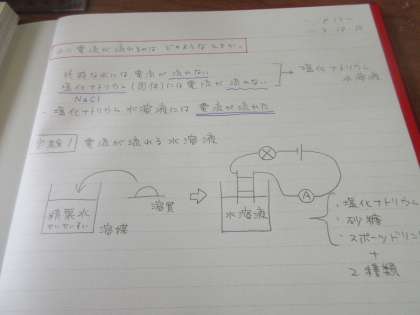 電流が流れるのは どのようなときか。
純粋な水には電流が流れない
塩化ナトリウム(固体)には電流が流れない
NaCl
塩化ナトリウム
水溶液
・塩化ナトリウム水溶液には 電流が流れた
実験1 電流が流れる水溶液
精製水
せいせいすい
溶媒
溶質
水溶液
A
・塩化ナトリウム
・砂糖
・スポーツドリンク
+
2種類